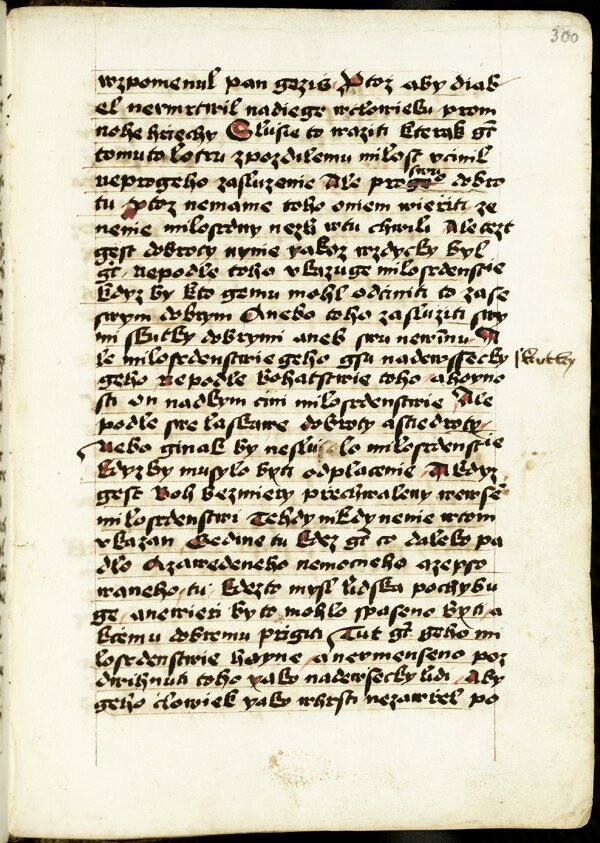 300
wzpomenul pan gezis Protoz aby diab
el nermrtwil nadiege wczlowieku prom
nohe hriechy Slusie to waziti kterak gt
tomuto lotru zpozdilemu milost vcinil
neprogeho zasluzenie Ale pro swu dobro
tu Protoz nemame toho oniem wieriti ze
nenie milosrdny nezli wtu chwili Ale tezt
gest dobroty nynie yakoz wzdycky byl
gt nepodle toho vkazuge milosrdenstwie
kdyz by kto gemu mohl odciniti to zase
swym dobrym Anebo toho zasluziti swy
mi skutky dobrymi aneb swu newinnu A
le milosrdenstwie geho gsu nadewssecky skutky
geho nepodle bohatstwie toho ahoyno
sti on nadkym cini milosrdenstwie Ale
podle swe laskawe dobroty asstiedroty
Nebo ginak by neslulo milosrdenstwie
kdyz by musylo byti odplacenie A kdyz
gest Boh bezmiery przechwaleny wewsem
milosrdenstwi Tehdy nikdy nenie wtom
vkazan Gedine tu kdez gt co daleko pa
dlo Azawedeneho nemocneho azepso
waneho tu kdezto mysl lidska pochybu
ge anewieri by to mohlo spaseno byti a
ktomu dobremu prigiti Tut gt geho mi
losrdenstwie hoyne anermenseno poz
dwihnuti toho yako nadewsecky lidi Aby
geho clowiek yako whrsti nezawrel po